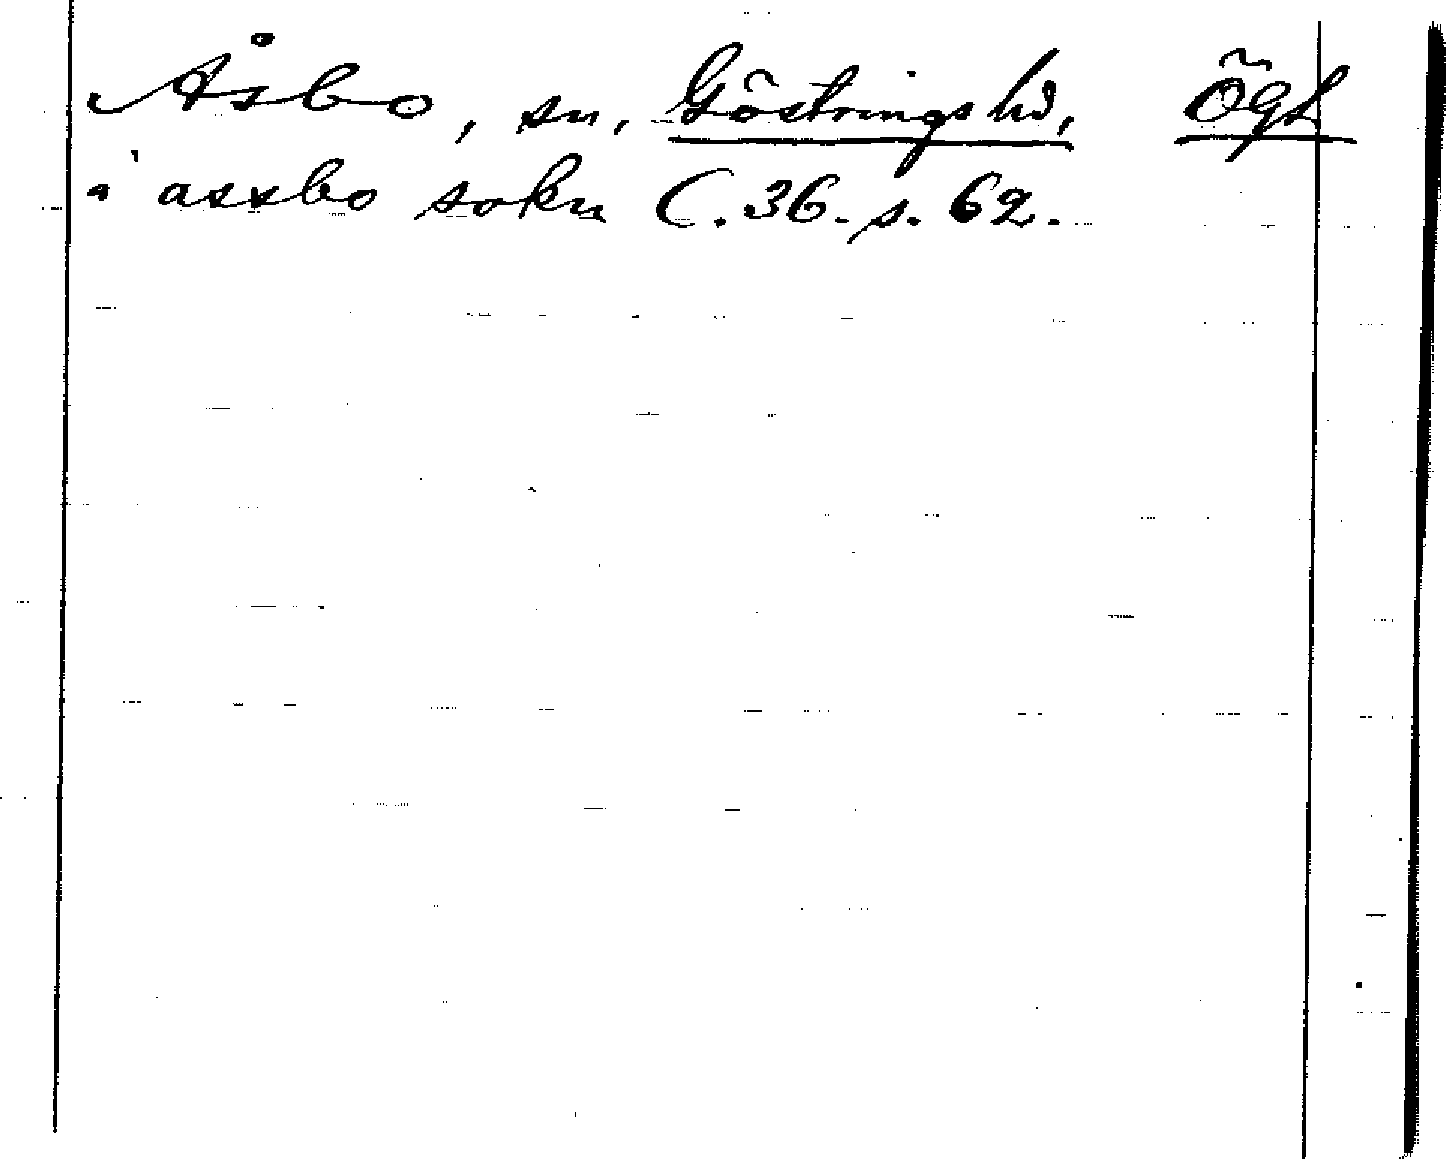 Åsbo, sn, Göstrings hd, Ögl
i assbo sokn C. 36. s. 62.